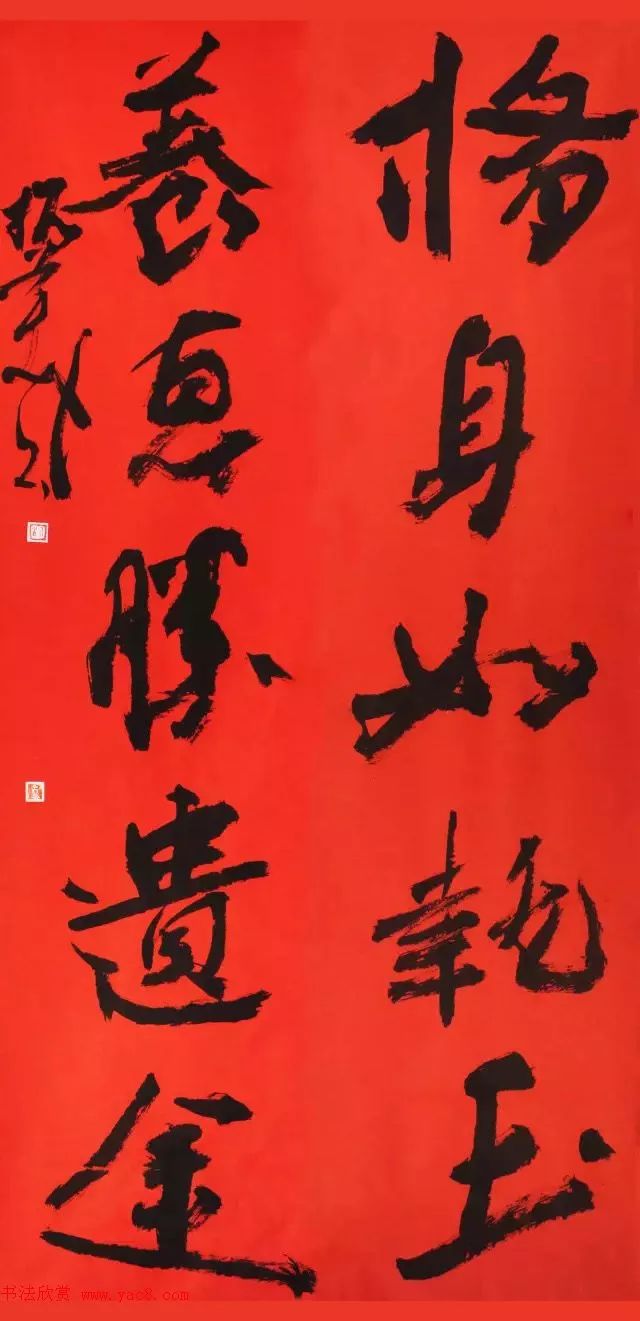 脩身如執玉
養惪勝遺金
书法欣赏 www.yac8.com